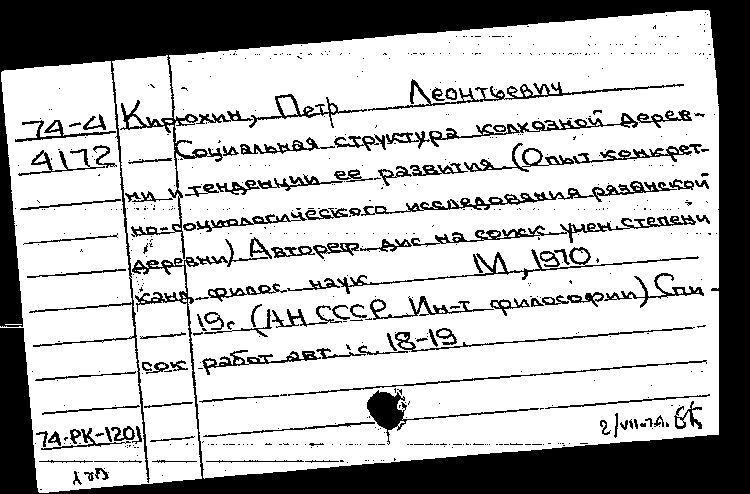 74-4 Кирюхин, Петр Леонтьевич
4172 Социальная структура колхозной дерев-
ни и тенденции ее развития (Опыт конкрет-
но-социологического исследования рязанской
деревни) Автореф. дис на соиск учен степени
канд. филос. наук М, 1970.
19с (АН СССР. Ин-т философии) Спи-
сок работ авт.: с. 18-19.
74-РК-1201
2/VII-74.